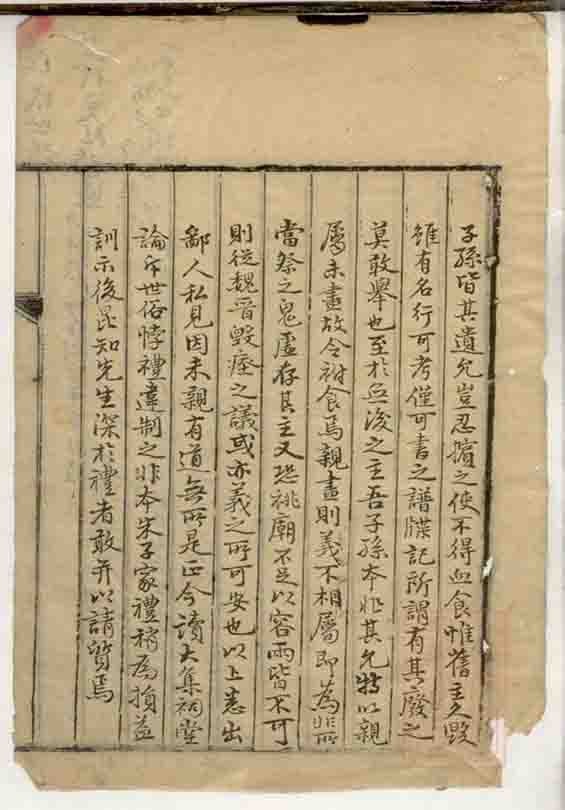 子孫皆其遺允豈忍擯之使不得血食惟舊主久毀
雖有名行可考僅可書之譜牒記所謂有其廢之
莫敢舉也至於無後之主吾子孫本非其允特以親
屬未盡故令祔食焉親盡則義不相屬即為非所
當祭之鬼虛存其主又恐祧廟不足以容兩皆不可
則從魏晉毀瘞之議或亦義之所可安也以上悉出
鄙人私見因未親有道無所是正今讀大集祠堂
論斥世俗悖禮違制之非本朱子家禮稍為損益
訓示後昆知先生深於禮者敢并以請質焉